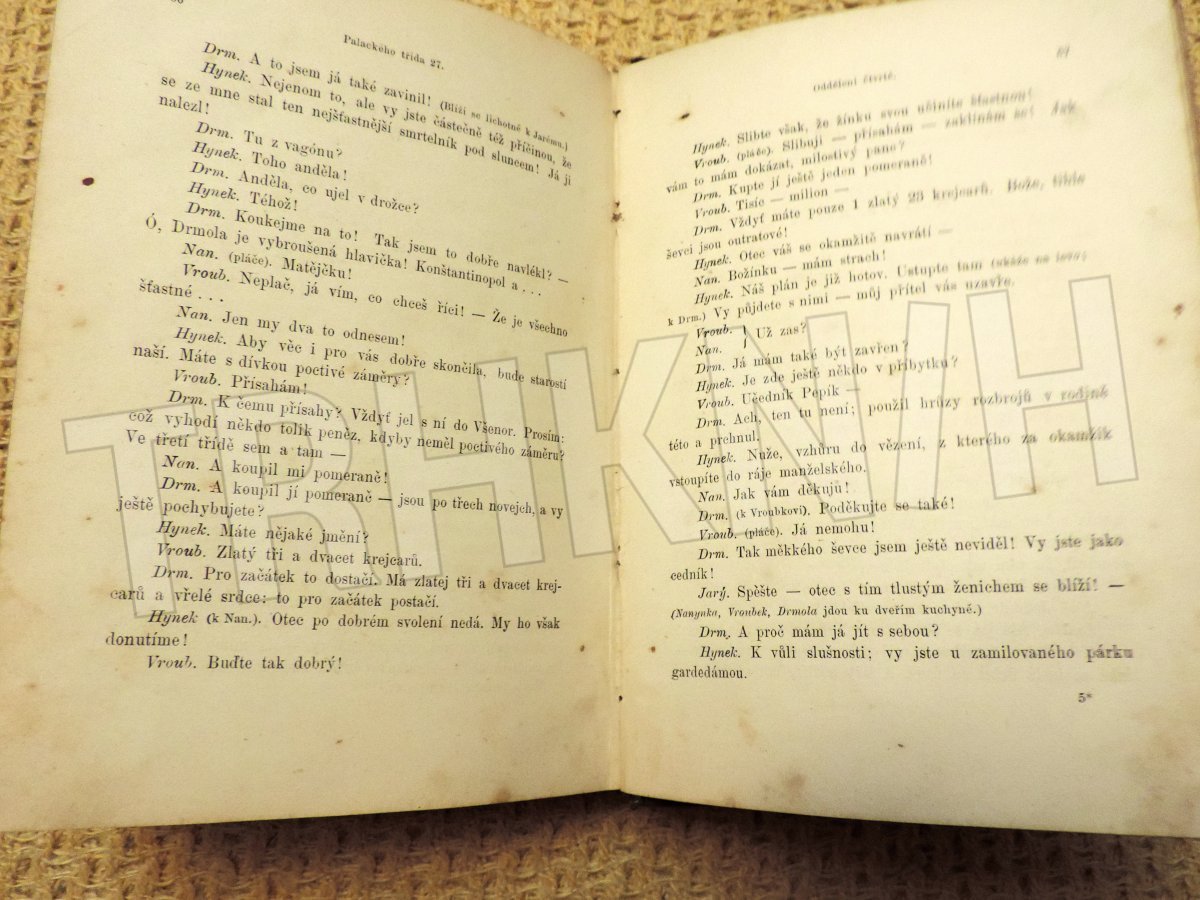 Palackého třída 27.
Drm. A to jsem já také zavinil! (Blíží se lichotně k Jarému.)
Hynek. Nejenom to, ale vy jste částečně též příčinou, že
se ze mne stal ten nejšťastnější smrtelník pod sluncem! Já ji
nalezl!
Drm. Tu z vagónu?
Hynek. Toho anděla!
Drm. Anděla, co ujel v drožce?
Hynek. Téhož!
Drm. Koukejme na to! Tak jsem to dobře navlékl? —
Ó, Drmola je vybroušená hlavička! Konštantinopol a . . .
Nan. (pláče). Matějčku!
Vroub. Neplač, já vím, co chceš říci! — Že je všechno
šťastné . . .
Nan. Jen my dva to odnesem!
Hynek. Aby věc i pro vás dobře skončila, bude starostí
naší. Máte s dívkou poctivé záměry?
Vroub. Přísahám!
Drm. K čemu přísahy? Vždyť jel s ní do Všenor. Prosím:
což vyhodí někdo tolik peněz, kdyby neměl poctivého záměru?
Ve třetí třídě sem a tam —
Nan. A koupil mi pomeranč!
Drm. A koupil jí pomeranč — jsou po třech novejch, a vy
ještě pochybujete?
Hynek. Máte nějaké jmění?
Vroub. Zlatý tři a dvacet krejcarů.
Drm. Pro začátek to dostačí. Má zlatej tři a dvacet krej-
carů a vřelé srdce: to pro začátek postačí.
Hynek (k Nan.). Otec po dobrém svolení nedá. My ho však
donutíme!
Vroub. Buďte tak dobrý!
Oddělení čtvrté.
Hynek. Slibte však, že žínku svou učiníte šťastnou!
Vroub. (pláče). Slibuji — přísahám — zaklínám se! Jak
vám to mám dokázat, milostivý pane?
Drm. Kupte jí ještě jeden pomeranč!
Vroub. Tisíc — milion —
Drm. Vždyť máte pouze 1 zlatý 23 krejcarů. Bože, tihle
ševci jsou outratové!
Hynek. Otec váš se okamžitě navrátí —
Nan. Božínku — mám strach!
Hynek. Náš plán je již hotov. Ustupte tam (ukáže na levo;
k Drm.) Vy půjdete s nimi — můj přítel vás uzavře.
Vroub. }
Nan. } Už zas?
Drm. Já mám také být zavřen?
Hynek. Je zde ještě někdo v příbytku?
Vroub. Učedník Pepík —
Drm. Ach, ten tu není; použil hrůzy rozbrojů v rodině
této a prchnul.
Hynek. Nuže, vzhůru do vězení, z kterého za okamžik
vstoupíte do ráje manželského.
Nan. Jak vám děkuju!
Drm. (k Vroubkoví). Poděkujte se také!
Vroub. (pláče). Já nemohu!
Drm. Tak měkkého ševce jsem ještě neviděl! Vy jste jako
cedník!
Jarý. Spěšte — otec s tím tlustým ženichem se blíží! —
(Nanynka, Vroubek, Drmola jdou ku dveřím kuchyně.)
Drm. A proč mám já jít s sebou?
Hynek. K vůli slušnosti; vy jste u zamilovaného párku
gardedámou.
5*
TRHKNIH